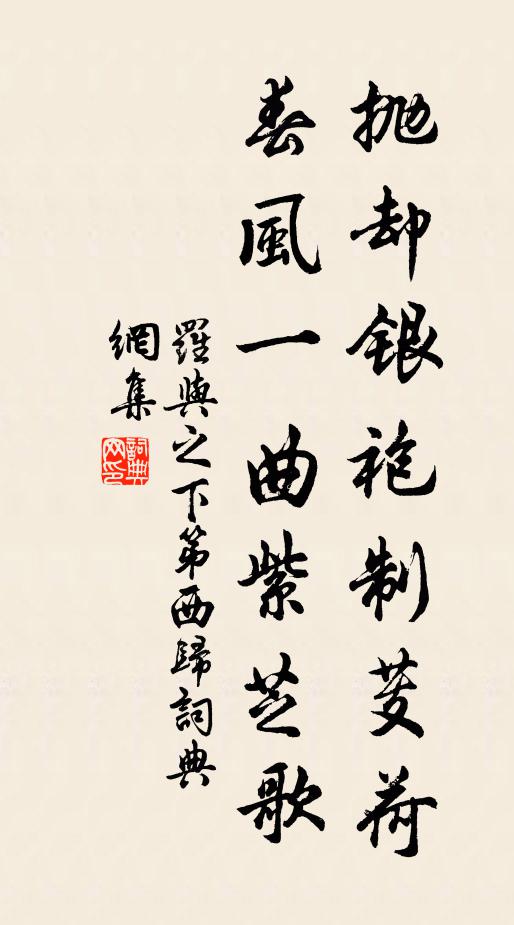 抛却銀袍制芰荷
春風一曲紫芝歌
羅與之下第西歸詞典
網集
詞典網印